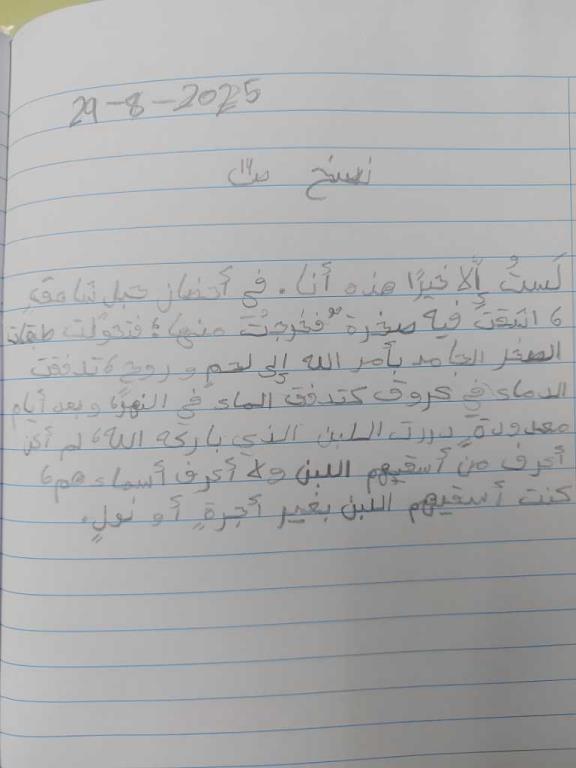 29-8-2025
نسخ ص١٤
لَستُ إلا خيرًا هذه أنا. في أحضان جبل شامقٍ
، انشقتْ فيه صخرة فخرجتُ منها؛ فتحوَّلت طبقات
الصخر الجامد بأمر الله إلى لحمٍ وروحٍ، تدفقت
الدماء في عروق كتدفق الماء في النهر، وبعد أيام
معدودةٍ دررت اللبن الذي باركه الله، لم أكن
أعرف من أسقيهم اللبن ولا أعرف أسماءهم،
كنت أسقيهم اللبن بغير أجرةٍ أو نولٍ.